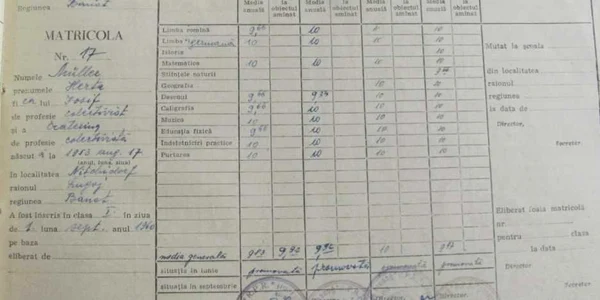 Regiunea Banat
MATRICOLA
Nr. 17
Numele Müller
prenumele Herta
fi ca lui Iosif
de profesie colectivist
și a Caterina
de profesie colectivistă
născut ă la 1953 aug. 17
(anul, luna, ziua)
în localitatea Nițchidorf
raionul Lugoj
regiunea Banat
A fost înscris în clasa I în ziua
de 1 luna sept. anul 1960
pe baza
eliberat de
Media anuală
la obiectul
Media anuală
la obiectul
aminat
Media anuală
la obiectul
aminat
Media anuală
la obiectul
aminat
Limba romînă 9,66 10 10
Limba germană 10 10 10 10
Istorie 10
Matematica 10 10 10 10
Științele naturii
Geografie 10 10
Desenul 9,66 10 10
Caligrafia 9,66 10 10 10
Muzica 10 10 10 10
Educația fizică 9,66 10 10 10
Îndeletniciri practice 10 10 10 10
Purtarea 10 10 10 10
media generală 9,92 10
situația în iunie promovată promovată promovată promovată
situația în septembrie
Mutat la școala
din localitatea
raionul
regiunea
la data de
Director,
Secretar
Eliberat foaia matricolă
nr.
pentru clasa
la data
Director,
Secretar